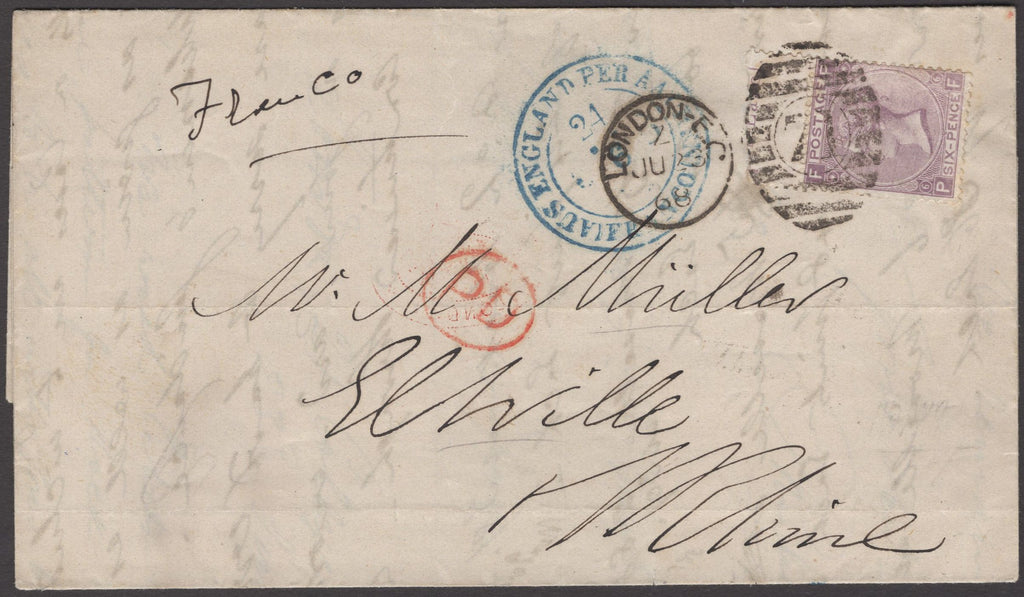 Franco
AUS ENGLAND PER AACHEN FRANCO
21
LONDON-E.C
Z
JU
68
F POSTAGE F
P SIX-PENCE F
6
PD
Mr. M. Müller
Eltville
Rhine